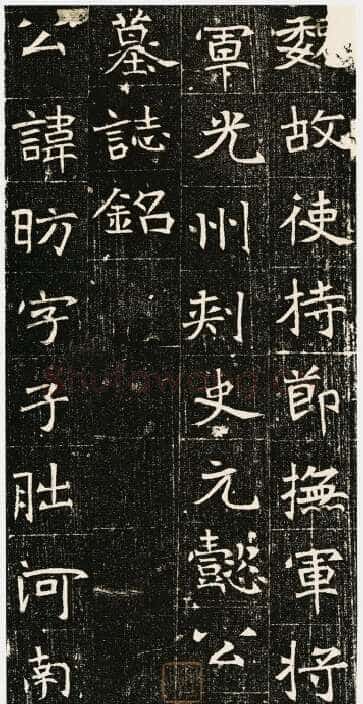 魏故使持節撫軍将
軍光州刾史元懿公
墓誌銘
公諱昉字子朏河南